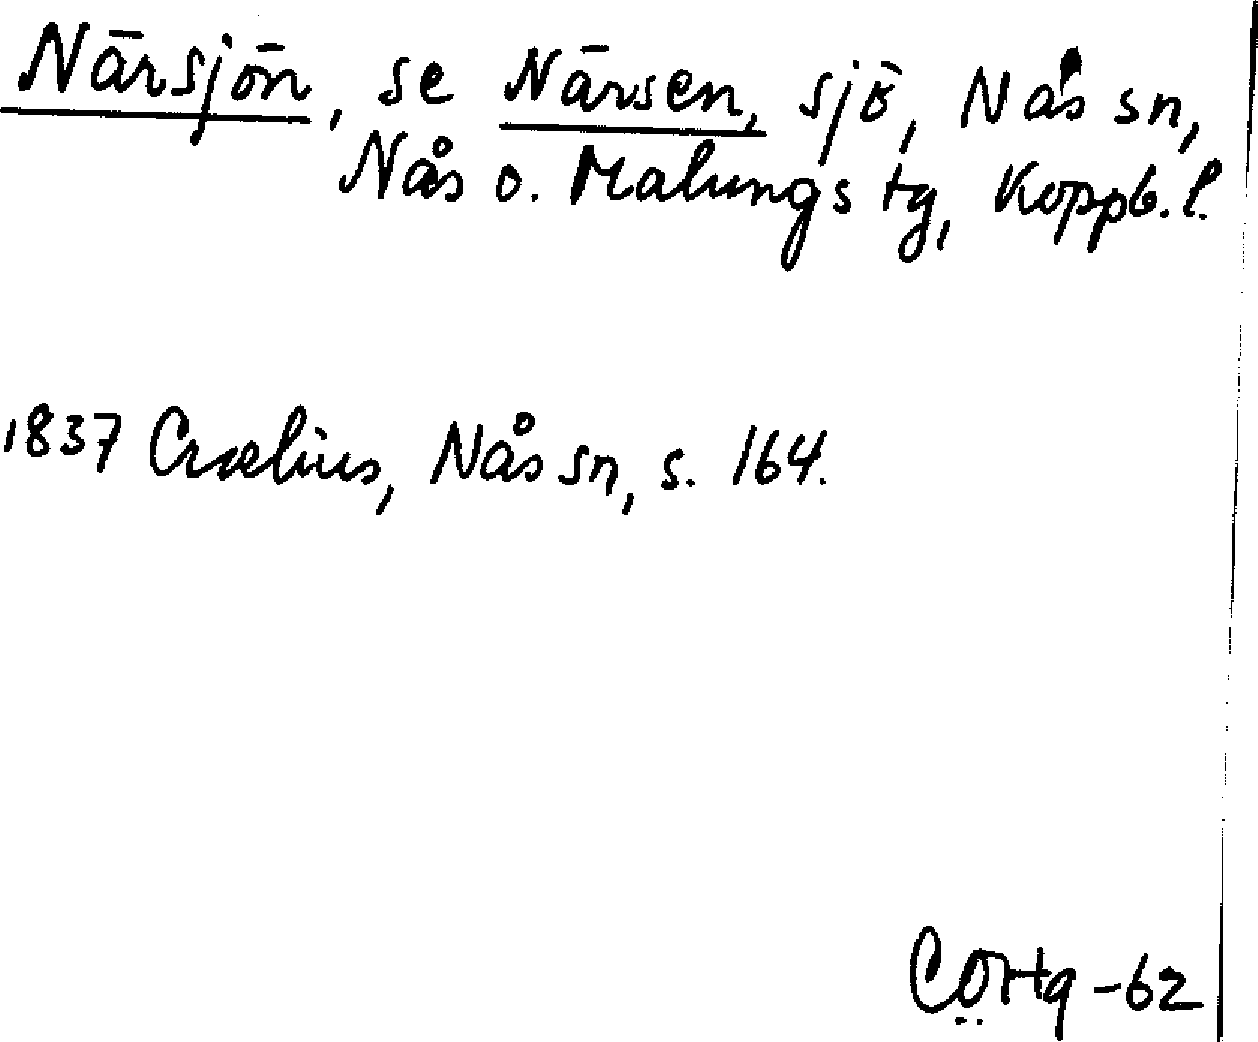 Närsjön, se Närsen, sjö, Nås sn,
Nås o. Malungs tg, Koppb. l.
1837 Crælius, Nås sn, s. 164.